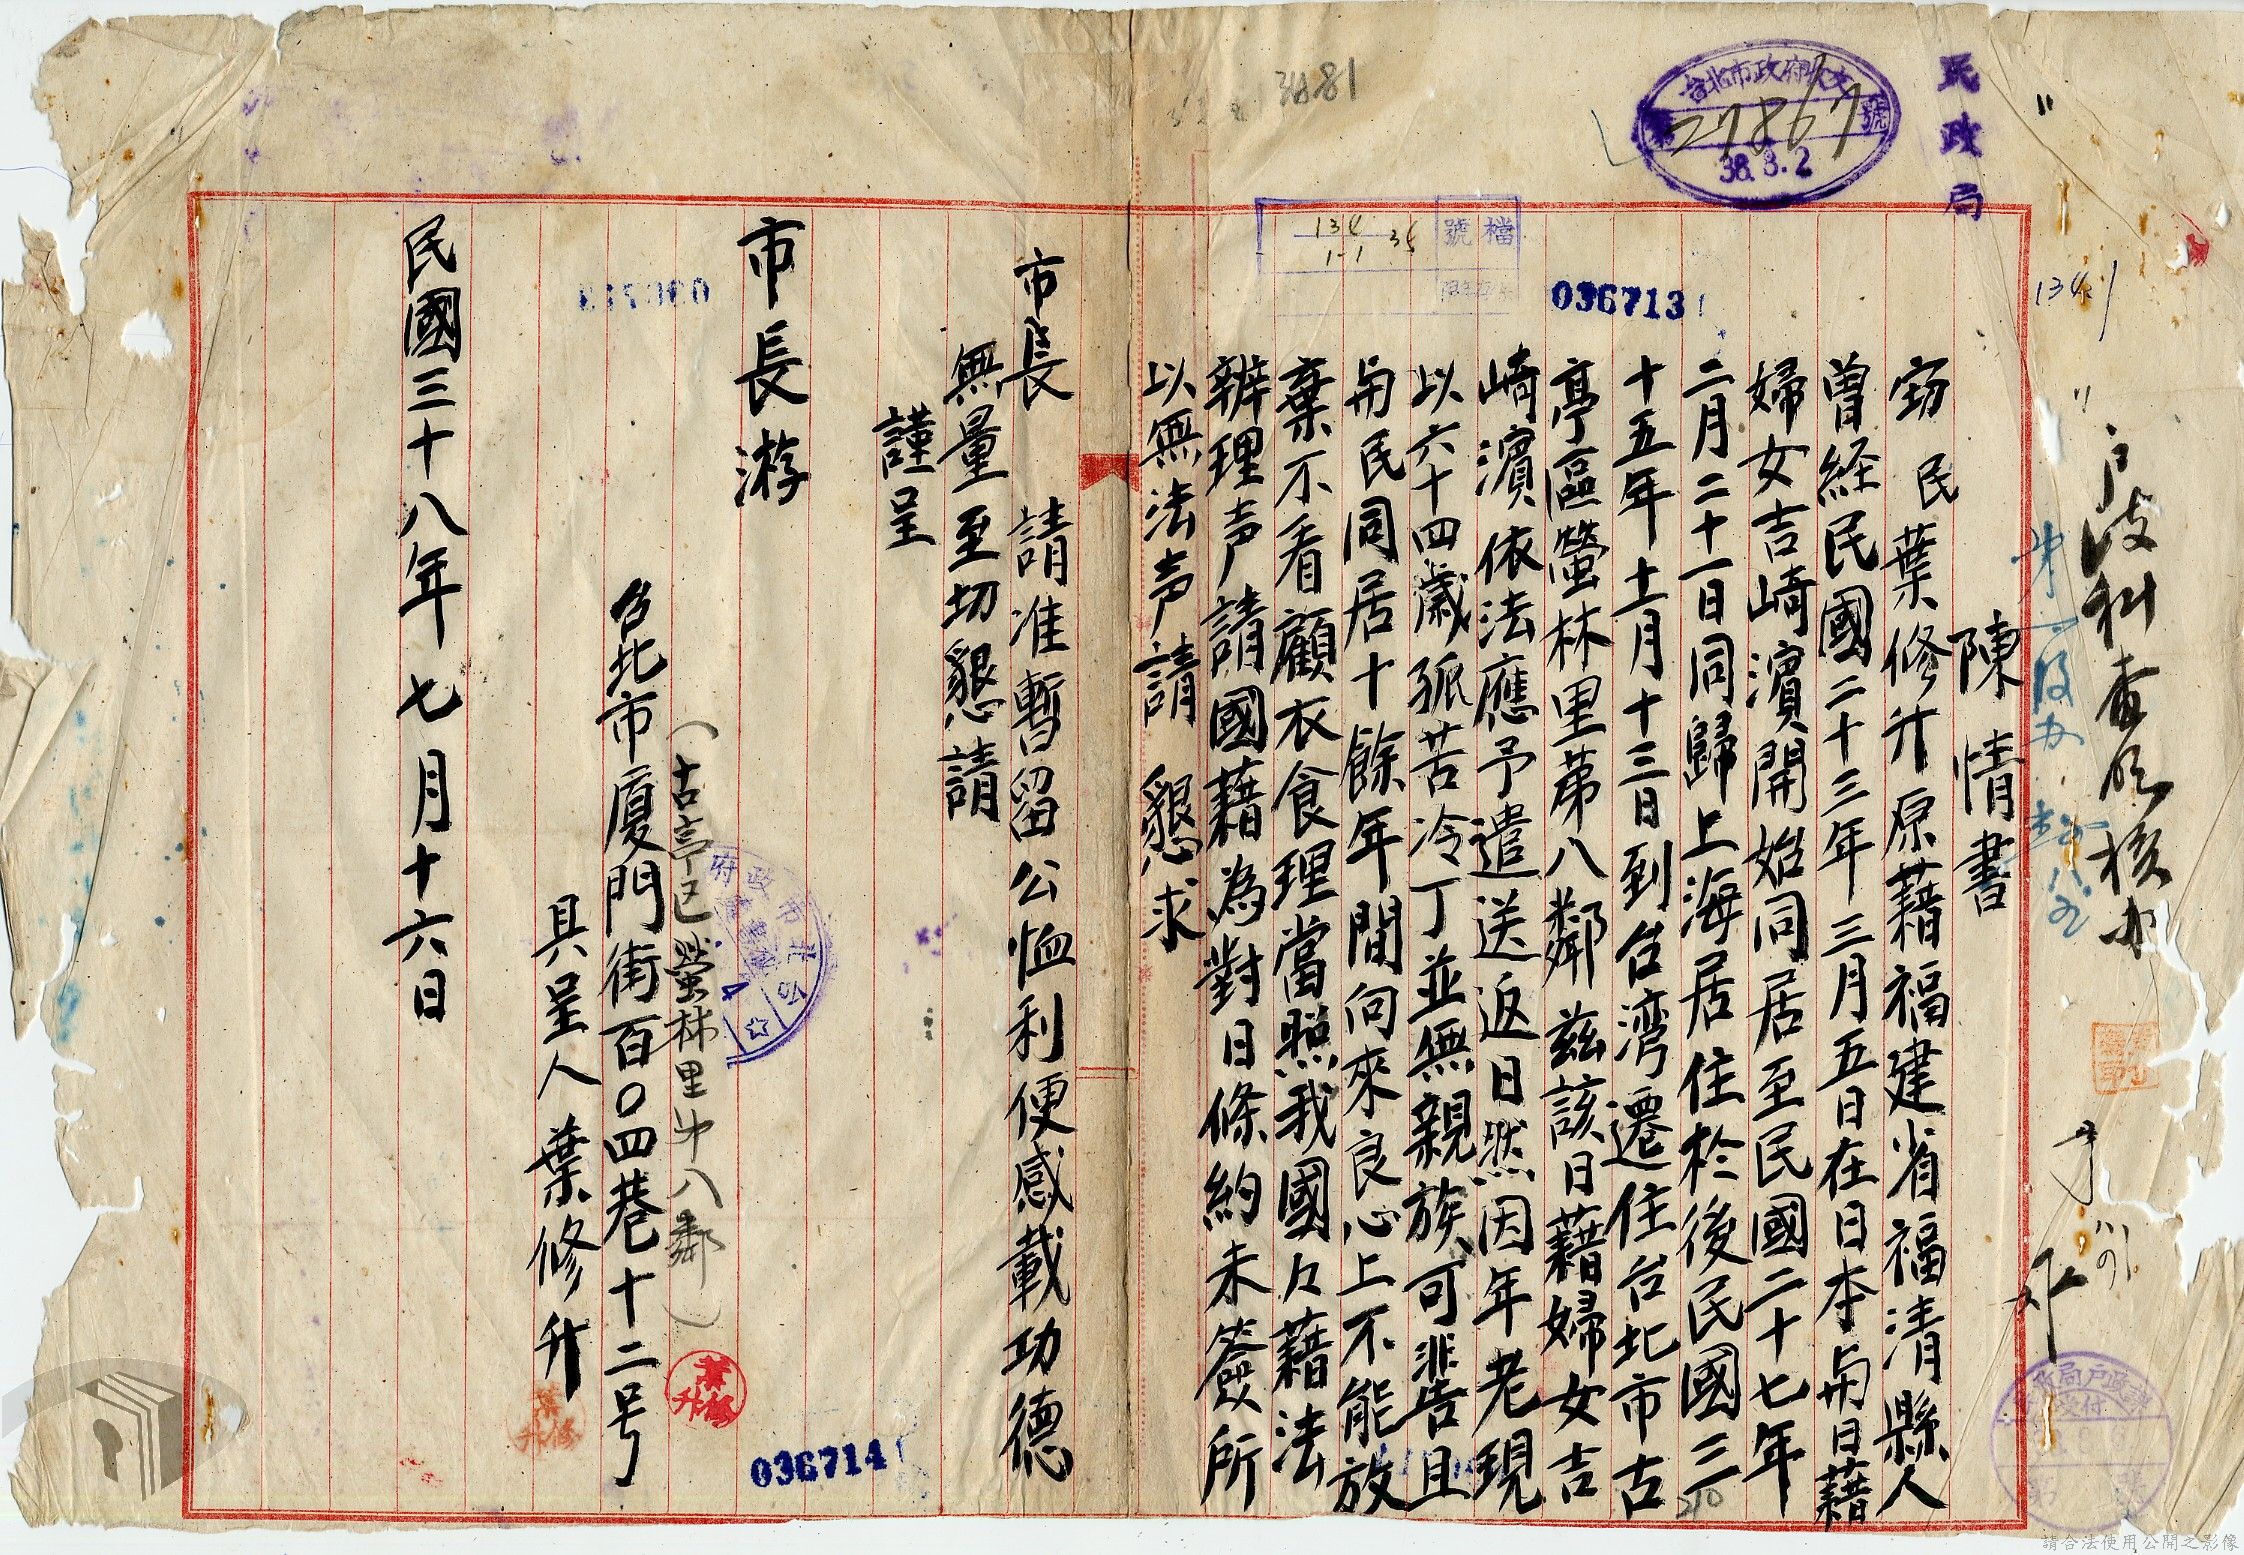 民政局
台北市政府收文
第27867號
38.8.2
3881
檔號
134
1-1
36
036713
134.1
戶政科查明核办
陳情書
窃民葉修升原藉福建省福清縣人
曾経民國二十三年三月五日在日本与日藉
婦女吉崎濱開始同居至民國二十七年
二月二十一日同歸上海居住於後民國三
十五年十二月十三日到台湾遷住台北市古
亭區螢林里第八鄰茲該日藉婦女吉
崎濱依法應予遣送返日然因年老現
以六十四歲孤苦冷丁並無親族可靠且
与民同居十餘年間向來良心上不能放
棄不看顧衣食理當照我國々藉法
辦理声請國藉為對日條約未簽所
以無法声請 懇求
市長 請准暫留公恤利便感載功德
無量至切懇請
謹呈
市長游
(古亭区螢林里第八鄰)
台北市廈門街百〇四巷十二号
具呈人葉修升
葉修升
民國三十八年七月十六日
036714
請合法使用公開之影像